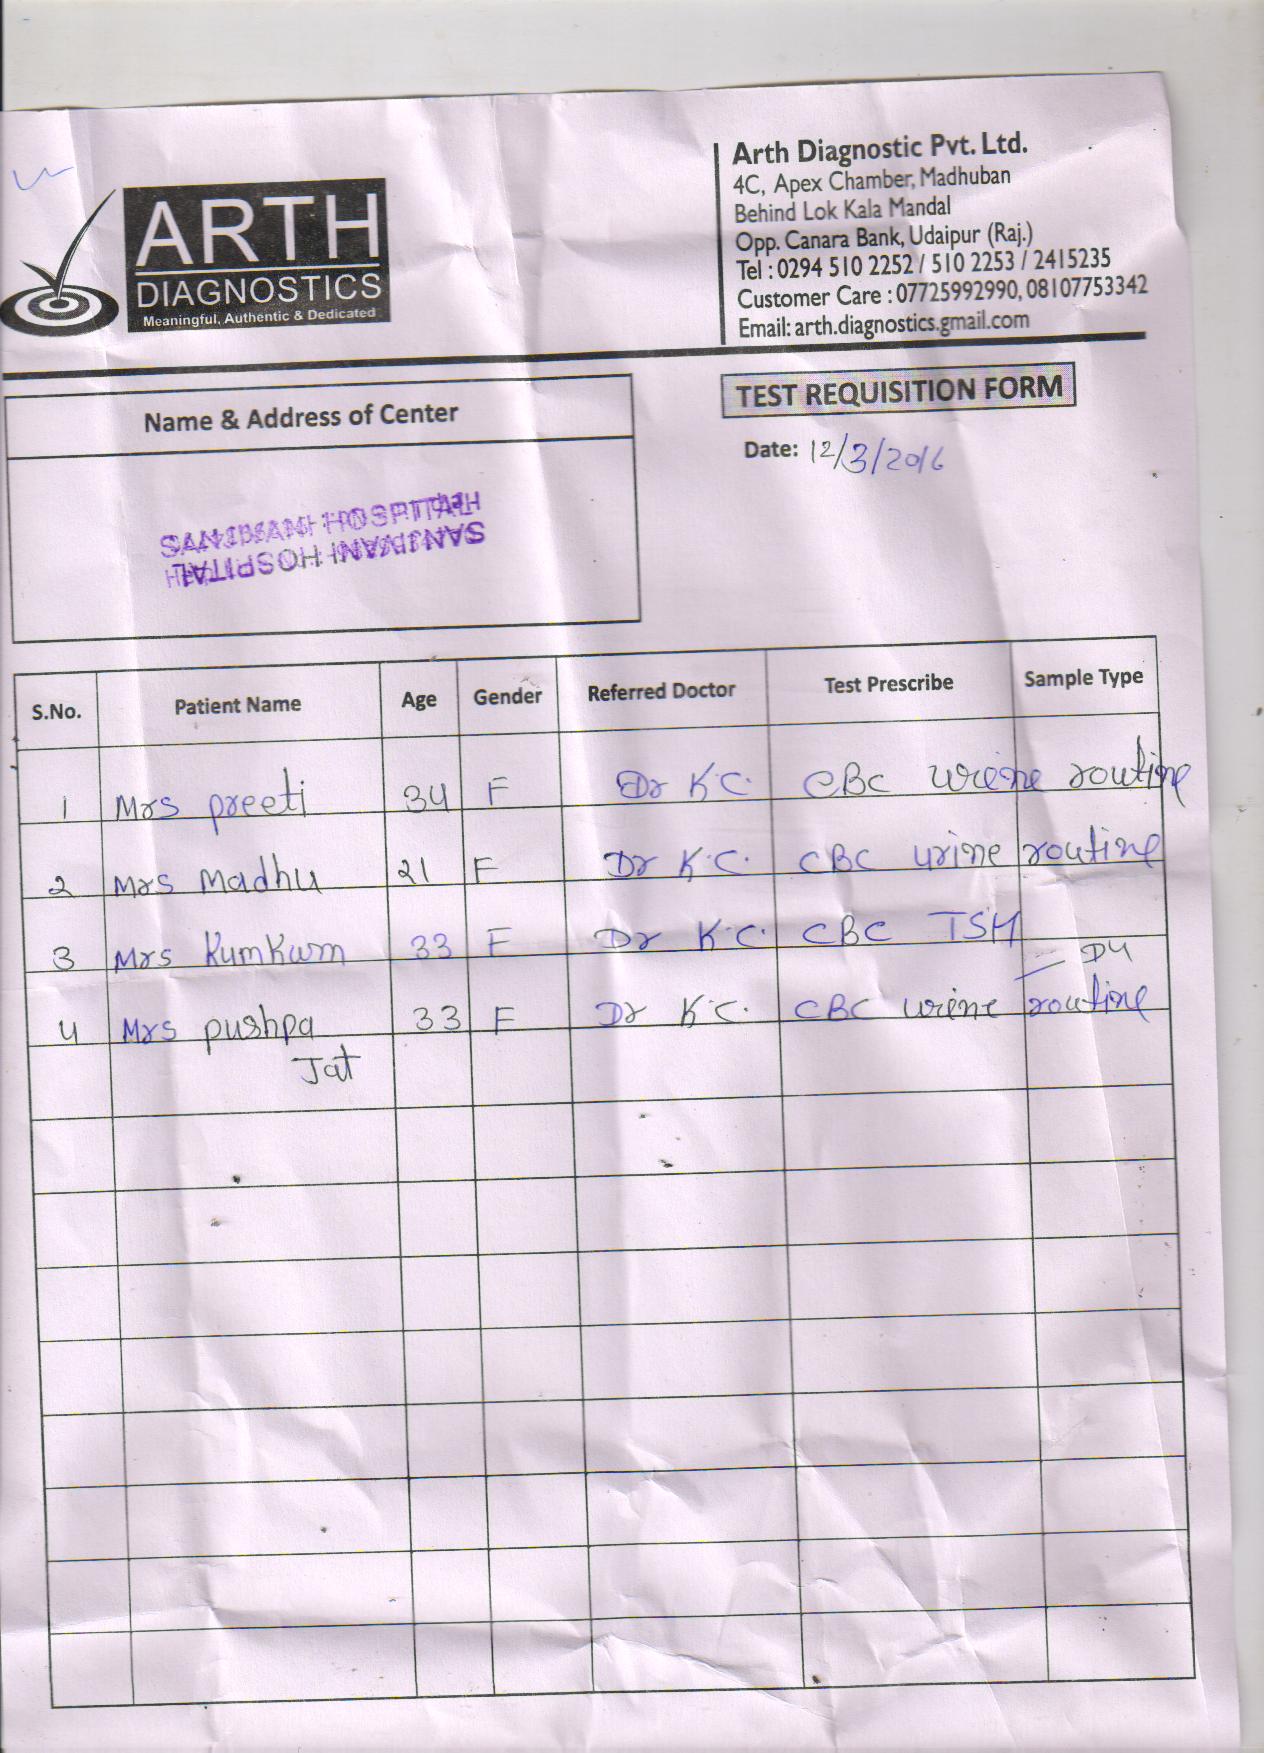 ARTH
DIAGNOSTICS
Meaningful, Authentic & Dedicated
Arth Diagnostic Pvt. Ltd.
4C, Apex Chamber, Madhuban
Behind Lok Kala Mandal
Opp. Canara Bank, Udaipur (Raj.)
Tel : 0294 510 2252 / 510 2253 / 2415235
Customer Care : 07725992990, 08107753342
Email: arth.diagnostics.gmail.com
TEST REQUISITION FORM
Date: 12/3/2016
Name & Address of Center
SANJIWANI HOSPITAL
SANJIWANI HOSPITAL
S.No. Patient Name Age Gender Referred Doctor Test Prescribe Sample Type
1 Mrs preeti 34 F Dr K.C. CBC urine routine
2 Mrs Madhu 21 F Dr K.C. CBC urine routine
3 Mrs Kumkum 33 F Dr K.C. CBC TSH
4 Mrs pushpa 33 F Dr K.C. CBC urine routine
Jat